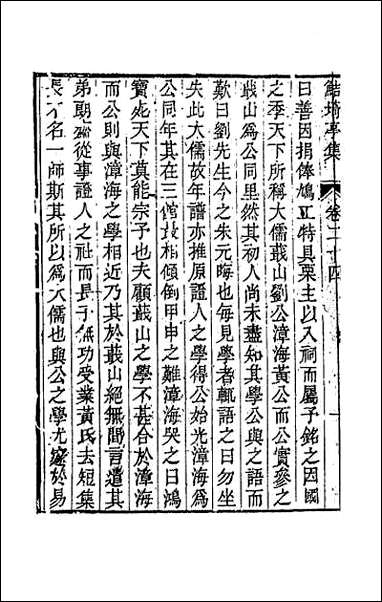 鮚埼亭集 卷二十四
曰善因捐俸鳩工特具栗主以入祠而屬予銘之因國
之季天下所稱大儒蕺山劉公漳海黃公而公實參之
蕺山爲公同里然其初人尚未盡知其學公與之語而
歎曰劉先生今之朱元晦也每見學者輒語之曰勿坐
失此大儒故年譜亦推原證人之學得公始光漳海爲
公同年其在三館最相傾倒甲申之難漳海哭之曰鴻
寶死天下莫能宗予也夫顧蕺山之學不甚合於漳海
而公則與漳海之學相近乃其於蕺山絕無間言遣其
弟朝 從事證人之社而長子無功受業黃氏去短集
長不名一師斯其所以爲大儒也與公之學尤深於易